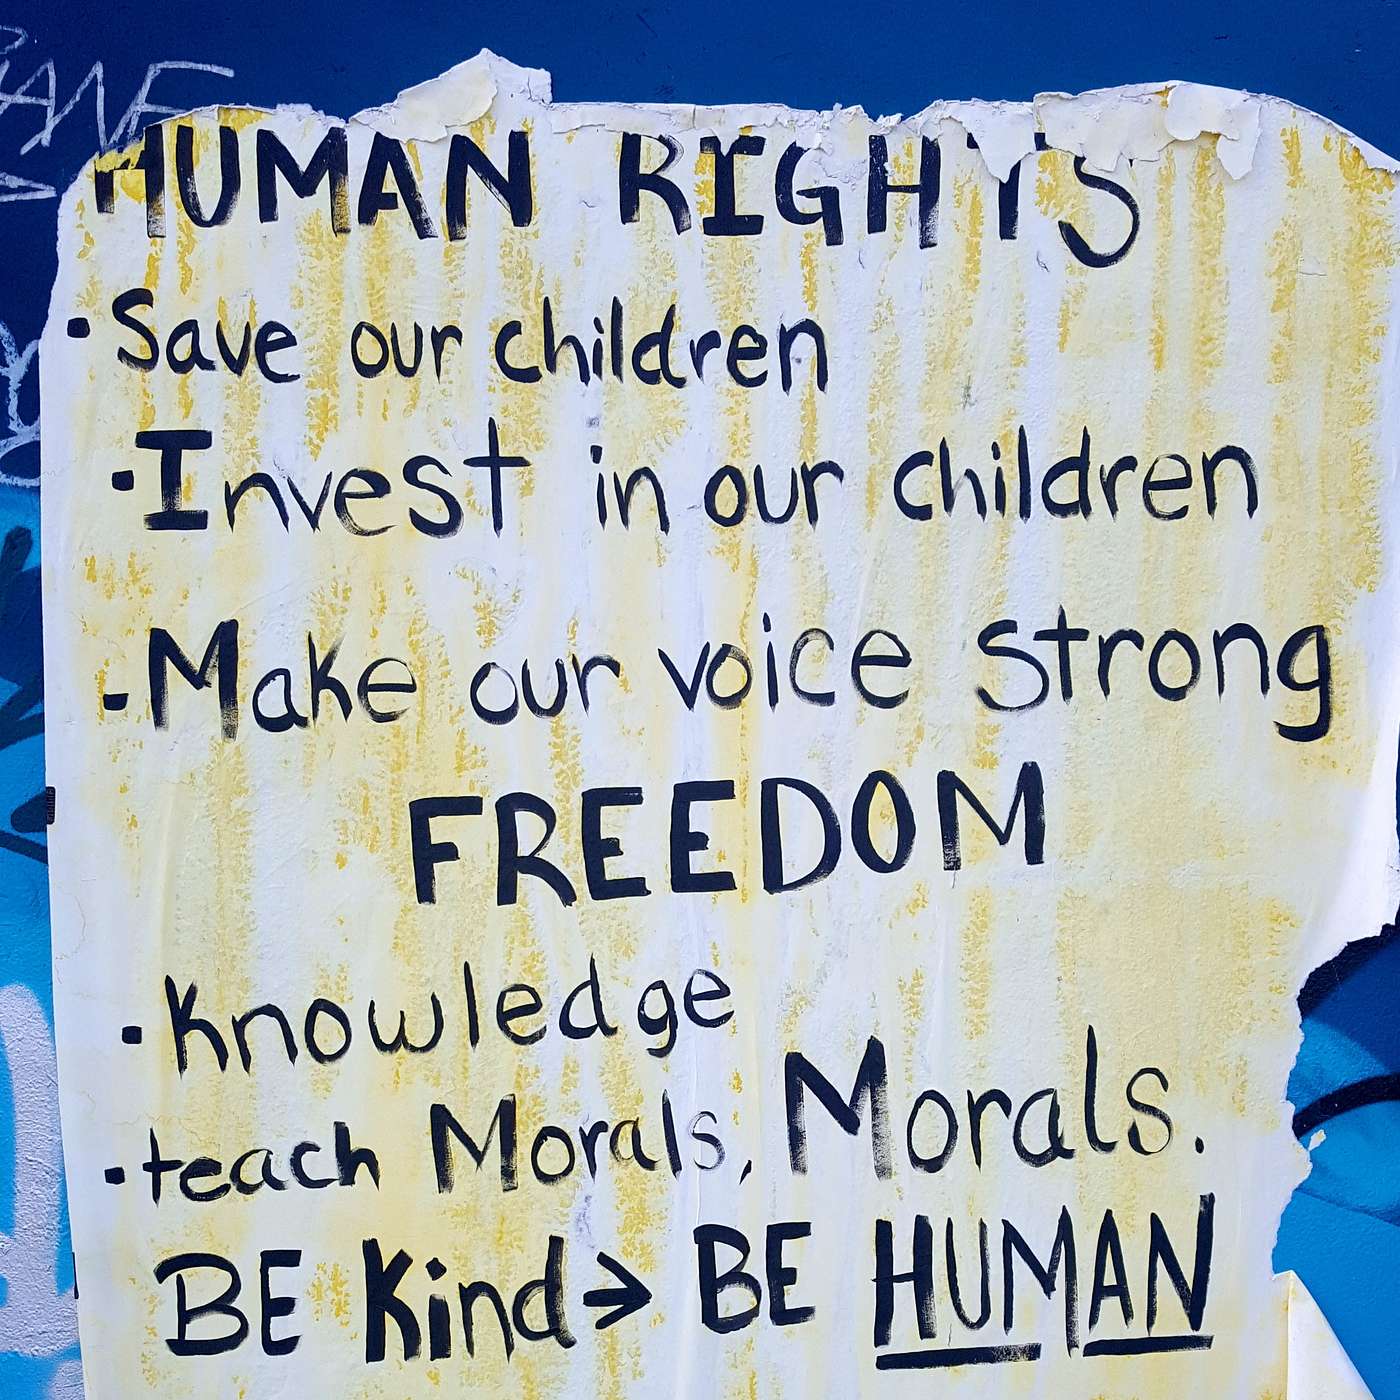 HUMAN RIGHTS
· Save our children
· Invest in our children
· Make our voice strong
FREEDOM
· Knowledge
· teach Morals, Morals.
BE Kind → BE HUMAN